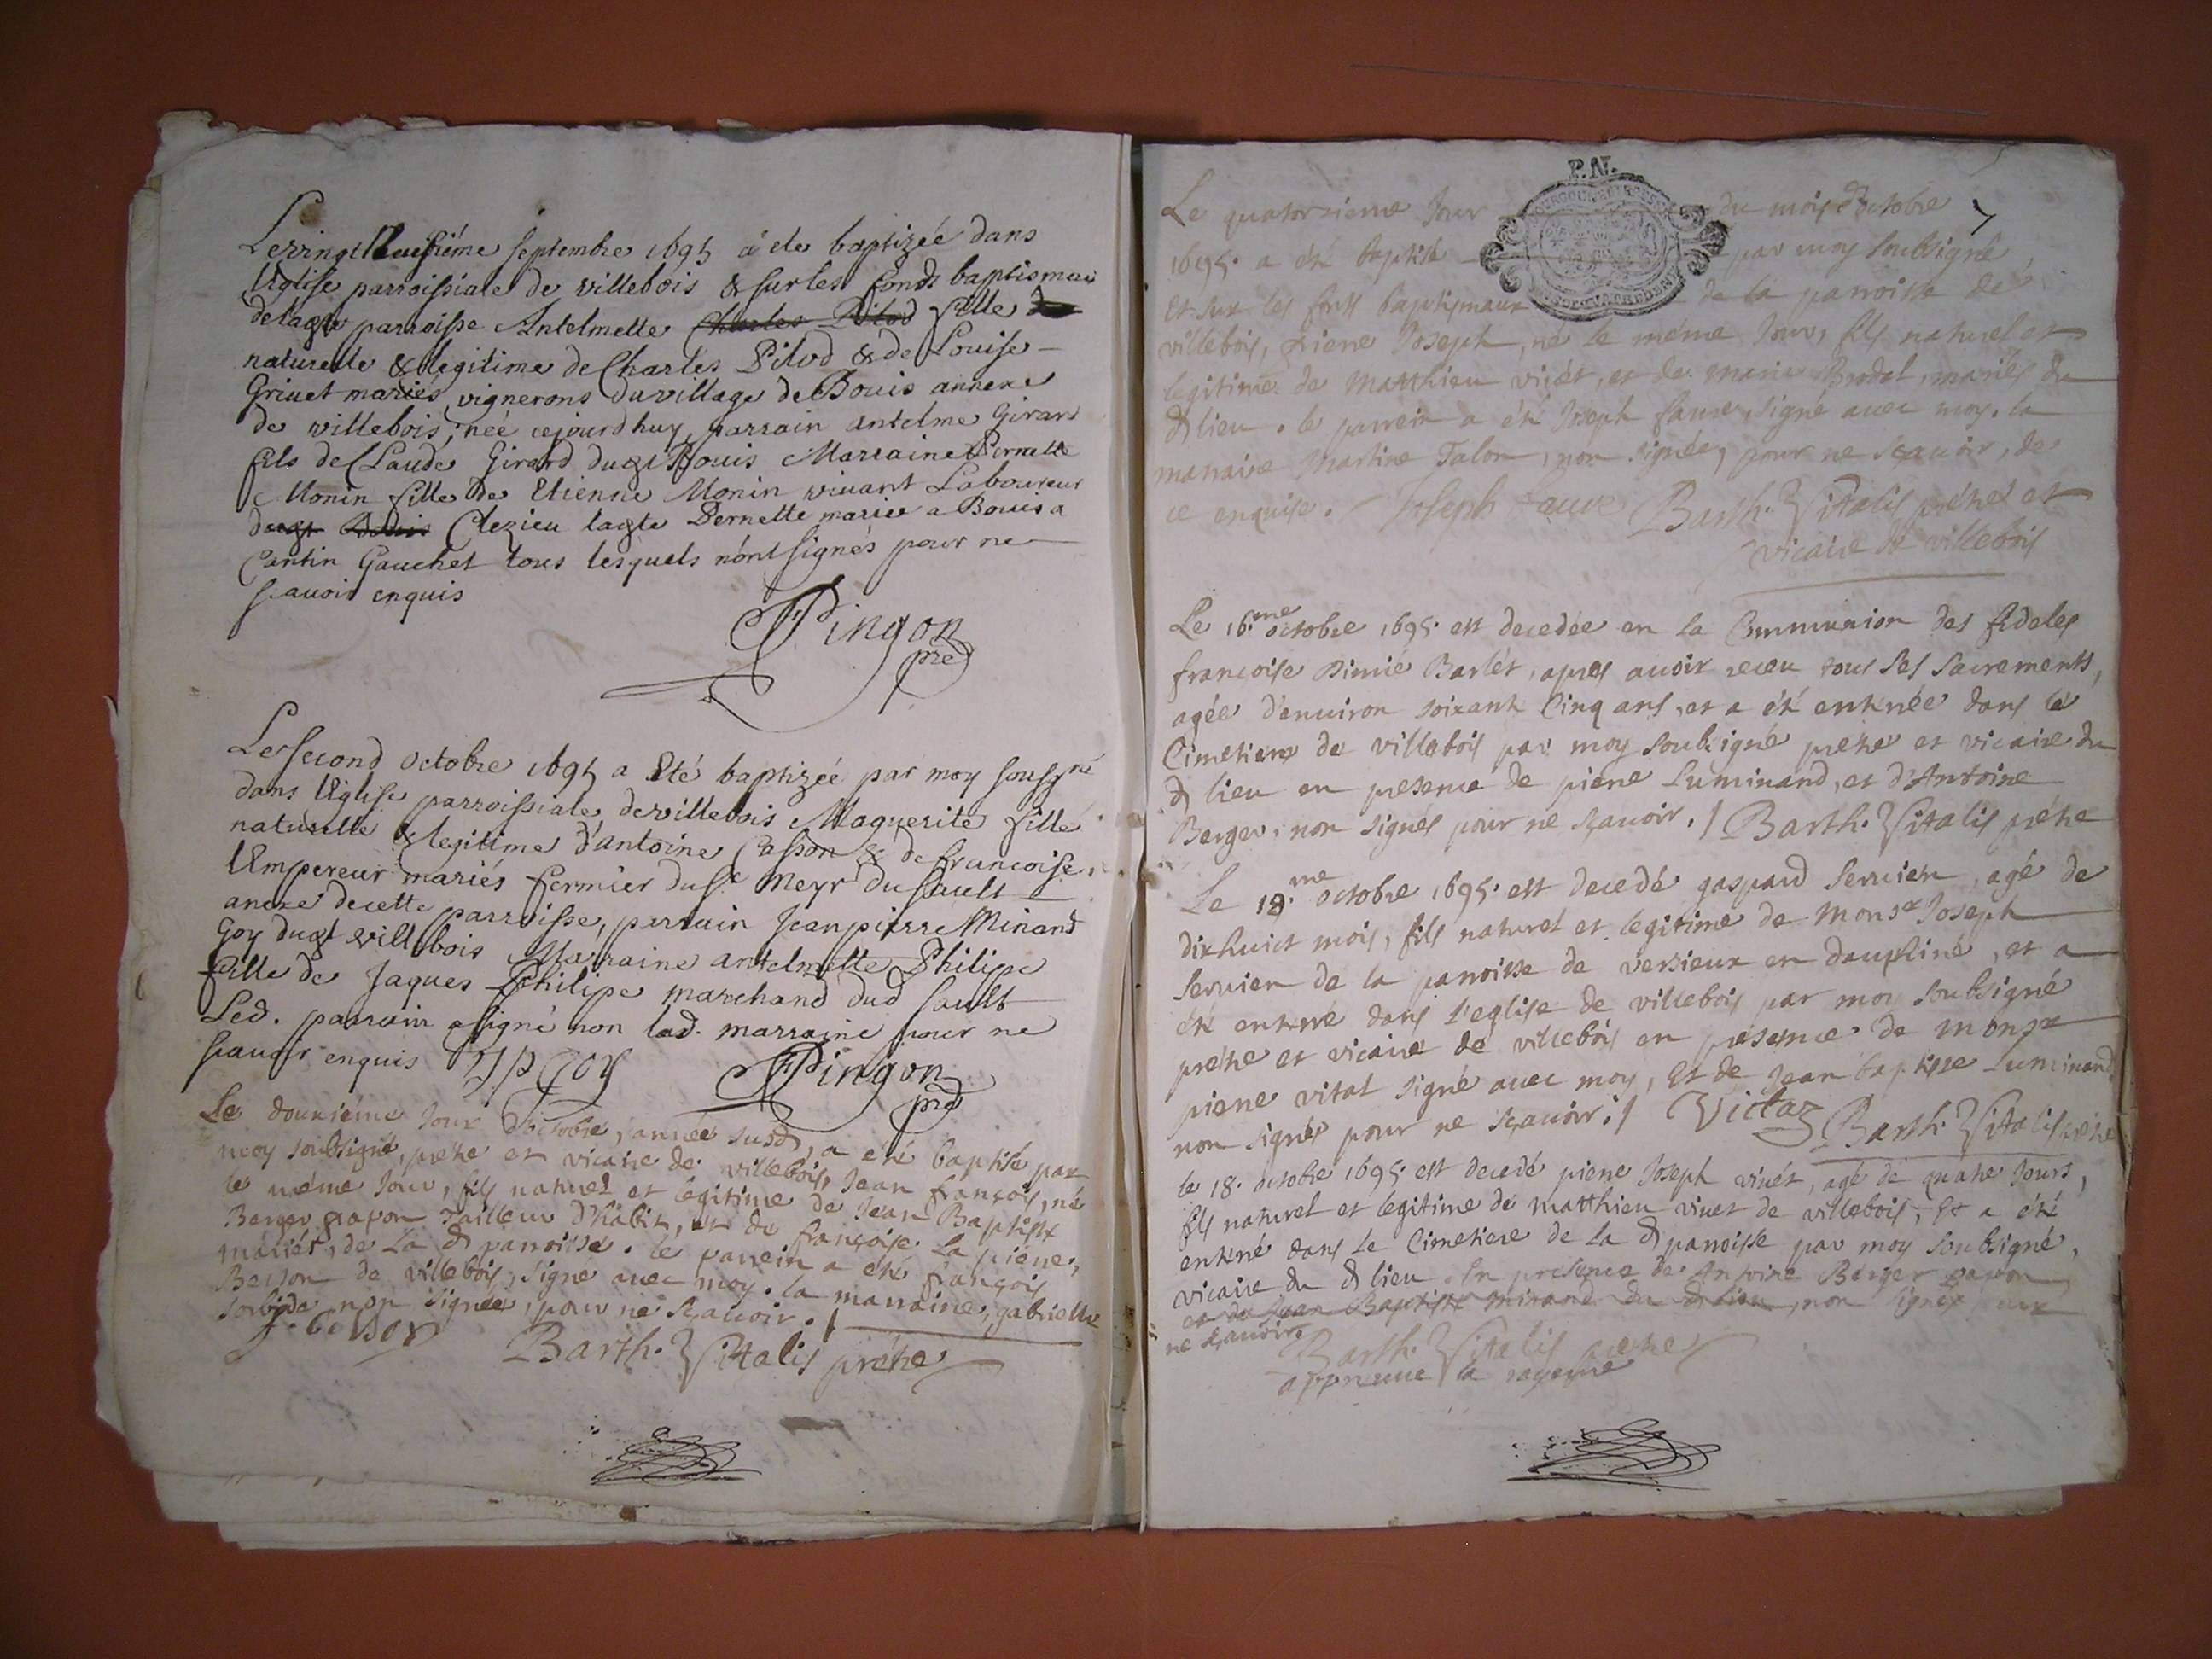 Le vingt huitième septembre 1695 a ete baptizée dans
l'Eglise parroissiale de villebois & sur les fonds baptismaux
de parroisse Antelmette Charles Pilod fille de
naturelle & legitime de Charles Pilod & de Louise
Griuet mariés vignerons du village de Bouis annexe
de villebois, née cejourdhuy, parrain antelme Girard
fils de Claude Girard dugt Bouis Marraine Pernette
Monin fille de Etienne Monin vivant Laboureur
dugt Bouis Clezieu Pernette mariée a Bouis a
Cantin Gauchet tous lesquels n'ont signés pour ne
scauoir enquis
Pingon
pre
Le second octobre 1695 a Eté baptizée par moy soussigné
dans l'Eglise parroissiale de villebois Maguerite fille
naturelle & legitime d'antoine Casson & de francoise
l'Empereur mariés fermier du Sr Meyr du Sault
anexe de cette parroisse, parrain Jean pierre Minand
Goy dugt villebois Marraine antelmette Philipe
fille de Jaques Philipe marchand dud Sault
Led. parrain a signé non lad. marraine pour ne
scauoir enquis JP Goy Pingon
pre
Le douxiéme Jour d'octobre, année susd, a eté baptisé par
moy soubsigné, pretre et vicaire de villebois, Jean françois, né
le méme Jour, fils naturel et legitime de Jean Baptiste
Berger tailleur d'habit, et de françoise La piene,
mariés, de la d parroisse. le parrein a eté françois
Besson de villebois, signé auec moy. la marraine, gabrielle
non signée, pour ne scauoir.
f. besson Barth. Vitalis prétre
P.N.
Le quatorsieme Jour du mois d'octobre 7
1695. a eté baptisé par moy soubsigné
Et sur les fonts baptismaux de la parroisse de
villebois, pierre Joseph, né le méme Jour, fils naturel et
legitime de Matthieu viuét, et de marie Brodet, mariés du
d lieu. le parrein a eté Joseph fauve, signé auec moy. la
marraine Martine Talon, non signée, pour ne scauoir, de
ce enquise. Joseph fauve Barth. Vitalis prétre et
vicaire de villebois
Le 16.me octobre 1695. est decedée en la Communion des fideles
françoise Barlét, apres auoir receu tous ses sacrements,
agée d'enuiron soixante Cinq ans, et a eté enterrée dans le
Cimetiere de villebois par moy soubsigné pretre et vicaire du
d lieu en presence de pierre Luminand, et d'Antoine
Berger, non signés pour ne scauoir. Barth. Vitalis prétre
Le 18.me octobre 1695. est decedé gaspard Seruien, agé de
dixhuict mois, fils naturel et legitime de Monsr Joseph
Seruien de la parroisse de versieux en dauphiné, et a
eté enterré dans l'eglise de villebois par moy soubsigné
prétre et vicaire de villebois en presence de Monsr
pierre vital signé auec moy, Et de Jean baptiste Luminand
non signés pour ne scauoir. Barth. Vitalis prétre
le 18. octobre 1695. est decedé pierre Joseph viuét, agé de quatre Jours,
fils naturel et legitime de matthieu viuet de villebois, Et a eté
enterré dans le Cimetiere de la d parroisse par moy soubsigné,
vicaire du d lieu. En presence de Antoine Berger
et de Jean Baptiste minand du d lieu, non signés pour
ne scauoir.
Barth. Vitalis pretre
appreuue la rayeure